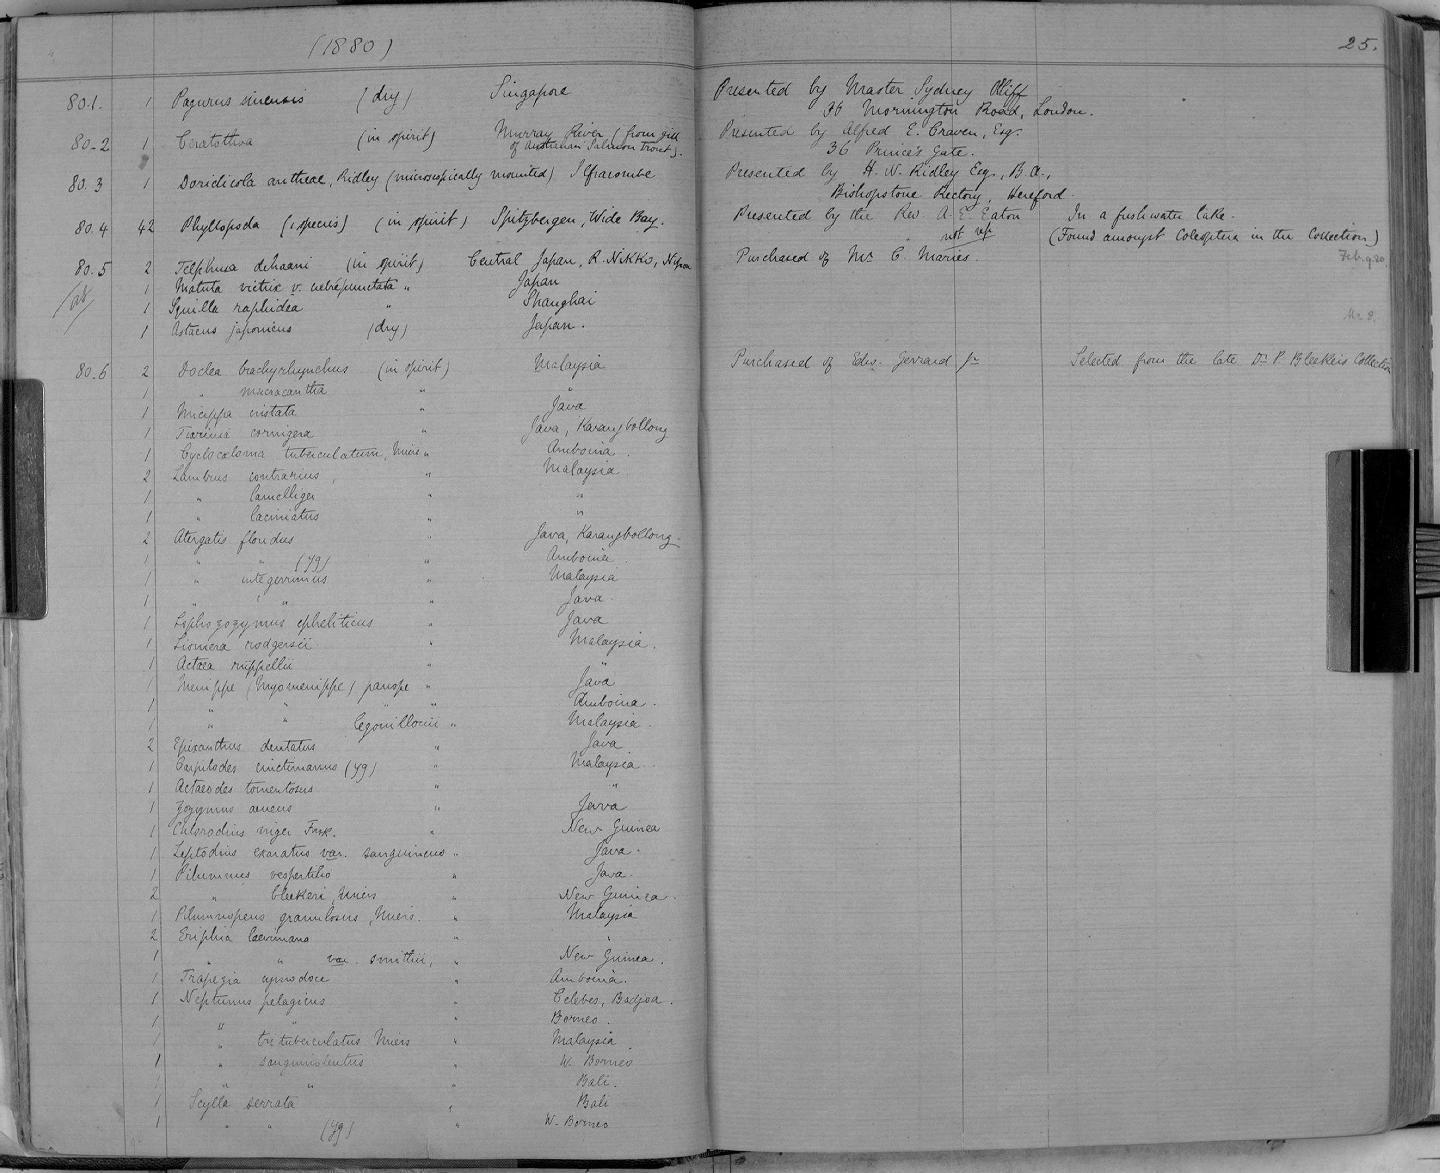 (1880)
25.
80.1. 1 Pagurus sinensis (dry) Singapore Presented by Master Sydney Oliff
36 Mornington Road, London.
80.2 1 Ceratothoa (in spirit) Murray River (from gill Presented by Alfred E. Craven, Esq.
of Australian Salmon trout). 36 Prince's Gate.
80.3 1 Doridicola antheae, Ridley (microscopically mounted) Ilfracombe Presented by H. N. Ridley Esq., B.A.,
Bishopstone Rectory, Hereford.
80.4 42 Phyllopoda (1 species) (in spirit) Spitzbergen, Wide Bay. Presented by the Rev. A. E. Eaton In a freshwater lake.
not up (Found amongst Coleoptera in the Collection)
80.5 2 Telphusa dehaani (in spirit) Central Japan, R. Nikko, Nipon Purchased of Mr C. Maries. Feb. 9. 80.
1 Matuta victrix v. crebrepunctata " Japan
1 Squilla raphidea " Shanghai
1 Astacus japonicus (dry) Japan.
80.6 2 Doclea brachyrhynchus (in spirit) Malaysia Purchased of Edw. Gerrard Jr Selected from the late Dr P. Bleeker's Collection
1 " macracantha " "
1 Micippa cristata " Java
1 Tiarinia cornigera " Java, Karangbollong
1 Cyclocoeloma tuberculatum, Miers " Amboina.
2 Lambrus contrarius, " Malaysia
1 " lamelliger " "
1 " laciniatus " "
2 Atergatis floridus " Java, Karangbollong.
1 " " (yg) " Amboina.
1 " integerrimus " Malaysia
1 " " " Java.
1 Lophozozymus epheliticus " Java
1 Liomera rodgersii " Malaysia.
1 Actaea ruppellii " "
1 Menippe (Myomenippe) panope " Java
1 " " " " Amboina.
1 " " legouillouii " Malaysia.
2 Epixanthus dentatus " Java
1 Carpilodes cinctimanus (yg) " Malaysia.
1 Actaeodes tomentosus "
1 Zozymus aeneus " Java
1 Chlorodius niger Forsk. " New Guinea
1 Leptodius exaratus var. sanguineus " Java.
1 Pilumnus vespertilio " Java.
2 " bleekeri, Miers " New Guinea.
1 Pilumnopeus granulosus, Miers. " Malaysia
2 Eriphia laevimana " "
1 " " var. smithii, " New Guinea.
1 Trapezia cymodoce " Amboina.
1 Neptunus pelagicus " Celebes, Badjoa.
1 " " " Borneo.
1 " trituberculatus Miers " Malaysia.
1 " sanguinolentus " W. Borneo
1 " " " Bali.
1 Scylla serrata " Bali
1 " " (yg) " W. Borneo